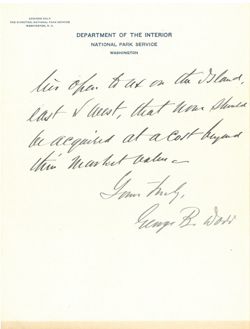 ADDRESS ONLY
THE DIRECTOR, NATIONAL PARK SERVICE
WASHINGTON, D. C.
DEPARTMENT OF THE INTERIOR
NATIONAL PARK SERVICE
WASHINGTON
lies open to us on the Island,
east & west, that none should
be acquired at a cost beyond
their market value.
Yours truly,
George B. Dorr